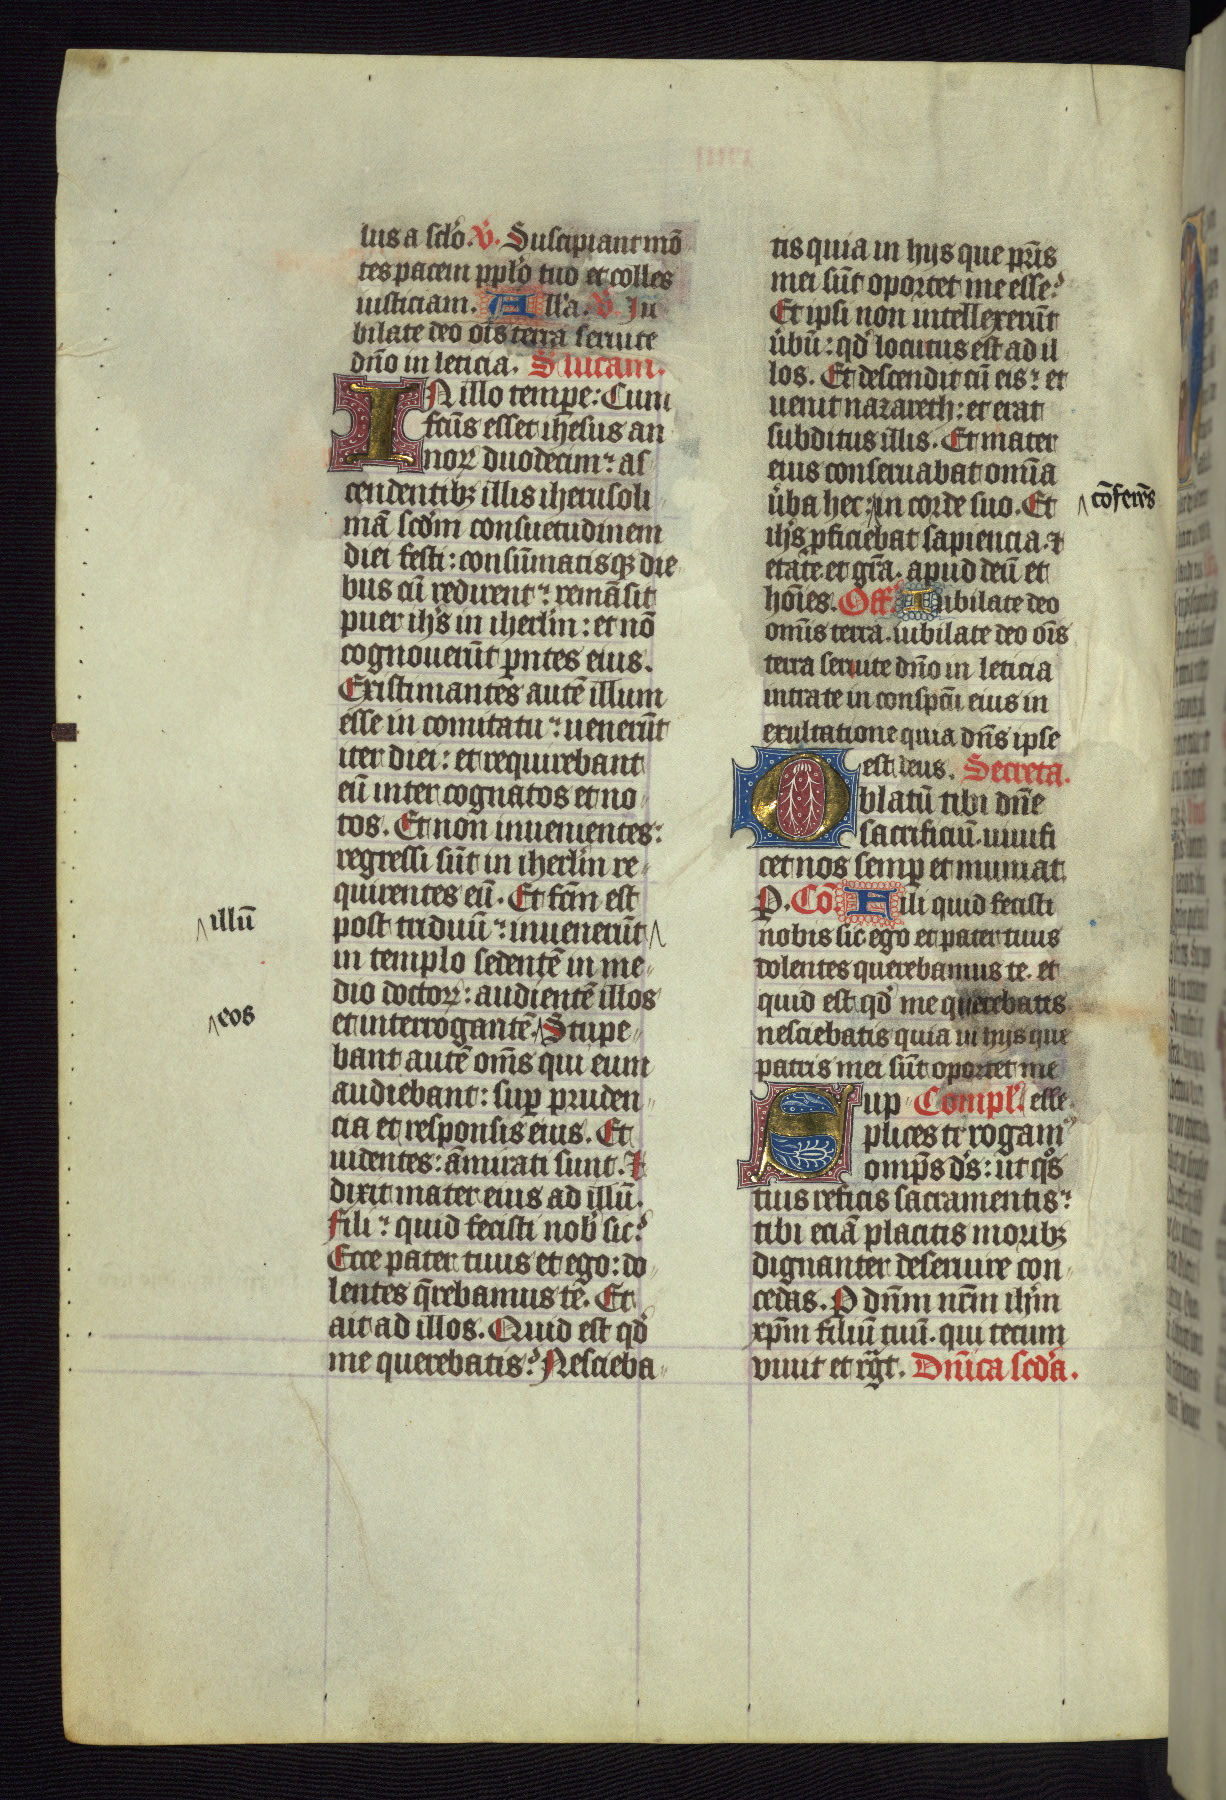 lus a sclo. V. Suscipiant mō
tes pacem pplo tuo et colles
iusticiam. All'a. V. Iu
bilate deo oīs terra seruite
dn̄o in leticia. S lucam.
IN illo tempe: Cum
fctūs esset ihesus an
norꝝ duodecim: as
cendentibꝫ illis iherusoli
mā scdm consuetudinem
diei festi: consūmatisqꝫ die
bus cū redirent: remāsit
puer ihs̄ in iherlm̄: et nō
cognouerūt pn̄tes eius.
Existimantes autē illum
esse in comitatu: uenerūt
iter diei: et requirebant
eū inter cognatos et no
tos. Et non inuenientes:
regressi sūt in iherlm̄ re
quirentes eū. Et fcm̄ est
post triduū: inuenerūt
illū
in templo sedentē in me
dio doctorꝝ: audientē illos
et interrogantē Stupe
eos
bant autē om̄s qui eum
audiebant: sup pruden
cia et responsis eius. Et
uidentes: āmirati sunt. Et
dixit mater eius ad illū.
Fili: quid fecisti nob sic?
Ecce pater tuus et ego: do
lentes q̄rebamus te. Et
ait ad illos. Quid est qd
me querebatis? Nescieba
tis quia in hijs que pr̄is
mei sūt oportet me esse?
Et ipsi non intellexerūt
ūbū: qd locutus est ad il
los. Et descendit cū eis: et
uenit nazareth: et erat
subditus illis. Et mater
eius conseruabat omīa
ūba hec: in corde suo. Et
cōferēs
ihs̄ pficiebat sapiencia. ⁊
etate. et gr̄a. apud deū et
hoīes. Off. Iubilate deo
omīs terra. iubilate deo oīs
terra seruite dn̄o in leticia
intrate in conspcū eius in
exultatione quia dn̄s ipse
est deus. Secreta.
Oblatū tibi dn̄e
sacrificiū. uiuifi
cet nos semp et muniat.
P. Cō. Fili quid fecisti
nobis sic ego et pater tuus
dolentes querebamus te. et
quid est qd me querebatis
nesciebatis quia in hijs que
patris mei sūt oportet me
Sup Compl. esse.
plices te rogam
omps ds: ut qs
tuis reficis sacramentis:
tibi eciā placitis moribꝫ
dignanter deseruire con
cedas. P dn̄m nr̄m ihm̄
xpm̄ filiū tuū. qui tecum
viuit et rḡt. Dn̄ica scda.